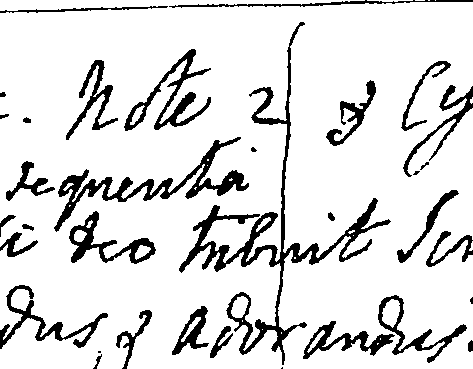 . Note 2 & Cy
sequentia
si deo tribuit Scr
dus, & adorandus.